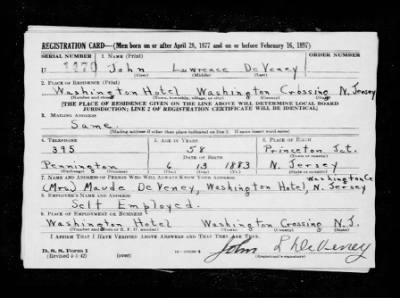 REGISTRATION CARD—(Men born on or after April 28, 1877 and on or before February 16, 1897)
SERIAL NUMBER 1. NAME (Print) ORDER NUMBER
John Lawrence DeVeney
(First) (Middle) (Last)
2. PLACE OF RESIDENCE (Print)
Washington Hotel Washington Crossing N. Jersey
[THE PLACE OF RESIDENCE GIVEN ON THE LINE ABOVE WILL DETERMINE LOCAL BOARD
JURISDICTION; LINE 2 OF REGISTRATION CERTIFICATE WILL BE IDENTICAL]
3. MAILING ADDRESS
Same
[Mailing address if other than place indicated on line 2. If same insert word same]
4. TELEPHONE 5. AGE IN YEARS 6. PLACE OF BIRTH
395 58 Princeton Jct.
DATE OF BIRTH
Pennington 6 13 1883 N. Jersey
7. NAME AND ADDRESS OF PERSON WHO WILL ALWAYS KNOW YOUR ADDRESS Washington Co
(Mrs) Maude DeVeney, Washington Hotel, N. Jersey
8. EMPLOYER'S NAME AND ADDRESS
Self Employed.
9. PLACE OF EMPLOYMENT OR BUSINESS
Washington Hotel Washington Crossing N.J.
I AFFIRM THAT I HAVE VERIFIED ABOVE ANSWERS AND THAT THEY ARE TRUE.
D. S. S. Form 1
(Revised 4-1-42) (over)
John L DeVeney
(Registrant's signature)